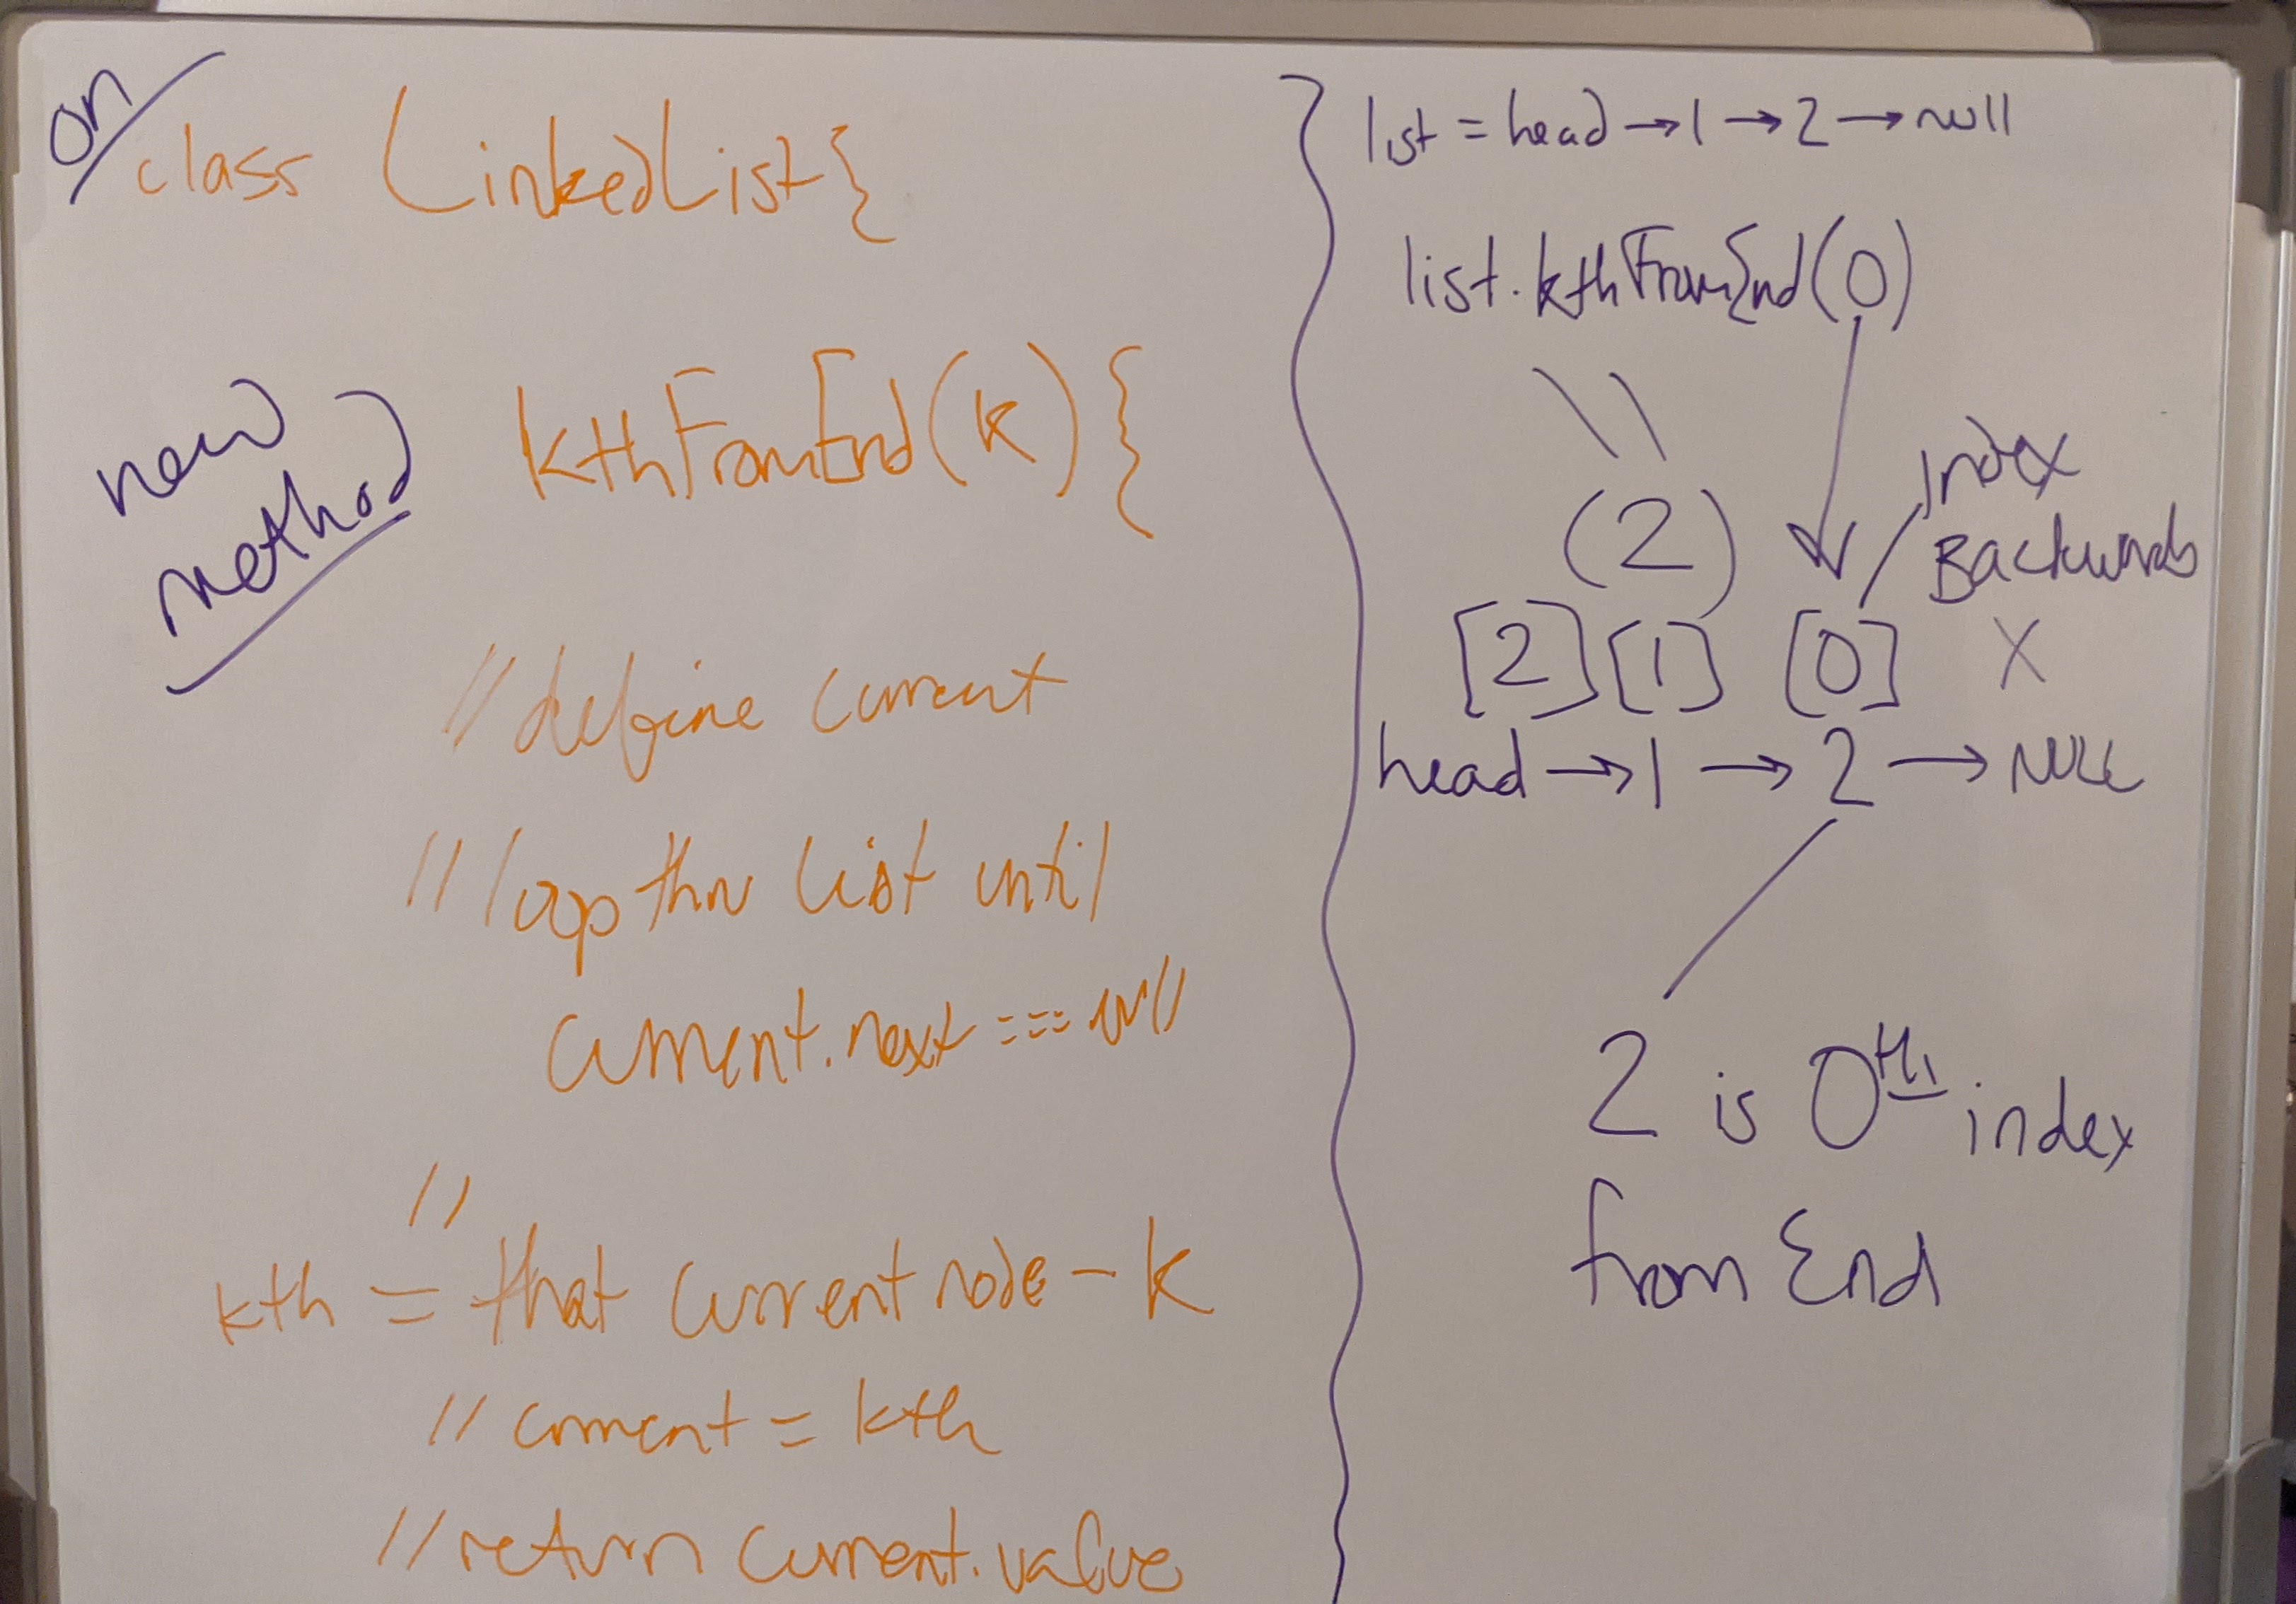 on
class LinkedList{
new
method
kthFromEnd(k){
//define current
//loop thru list until
current.next === null
//
kth = that current node - k
// current = kth
//return current.value
list = head → 1 → 2 → null
list.kthFromEnd(0)
\\
(2)
Index
Backwards
[2] [1] [0] X
head → 1 → 2 → NULL
2 is 0th index
from End